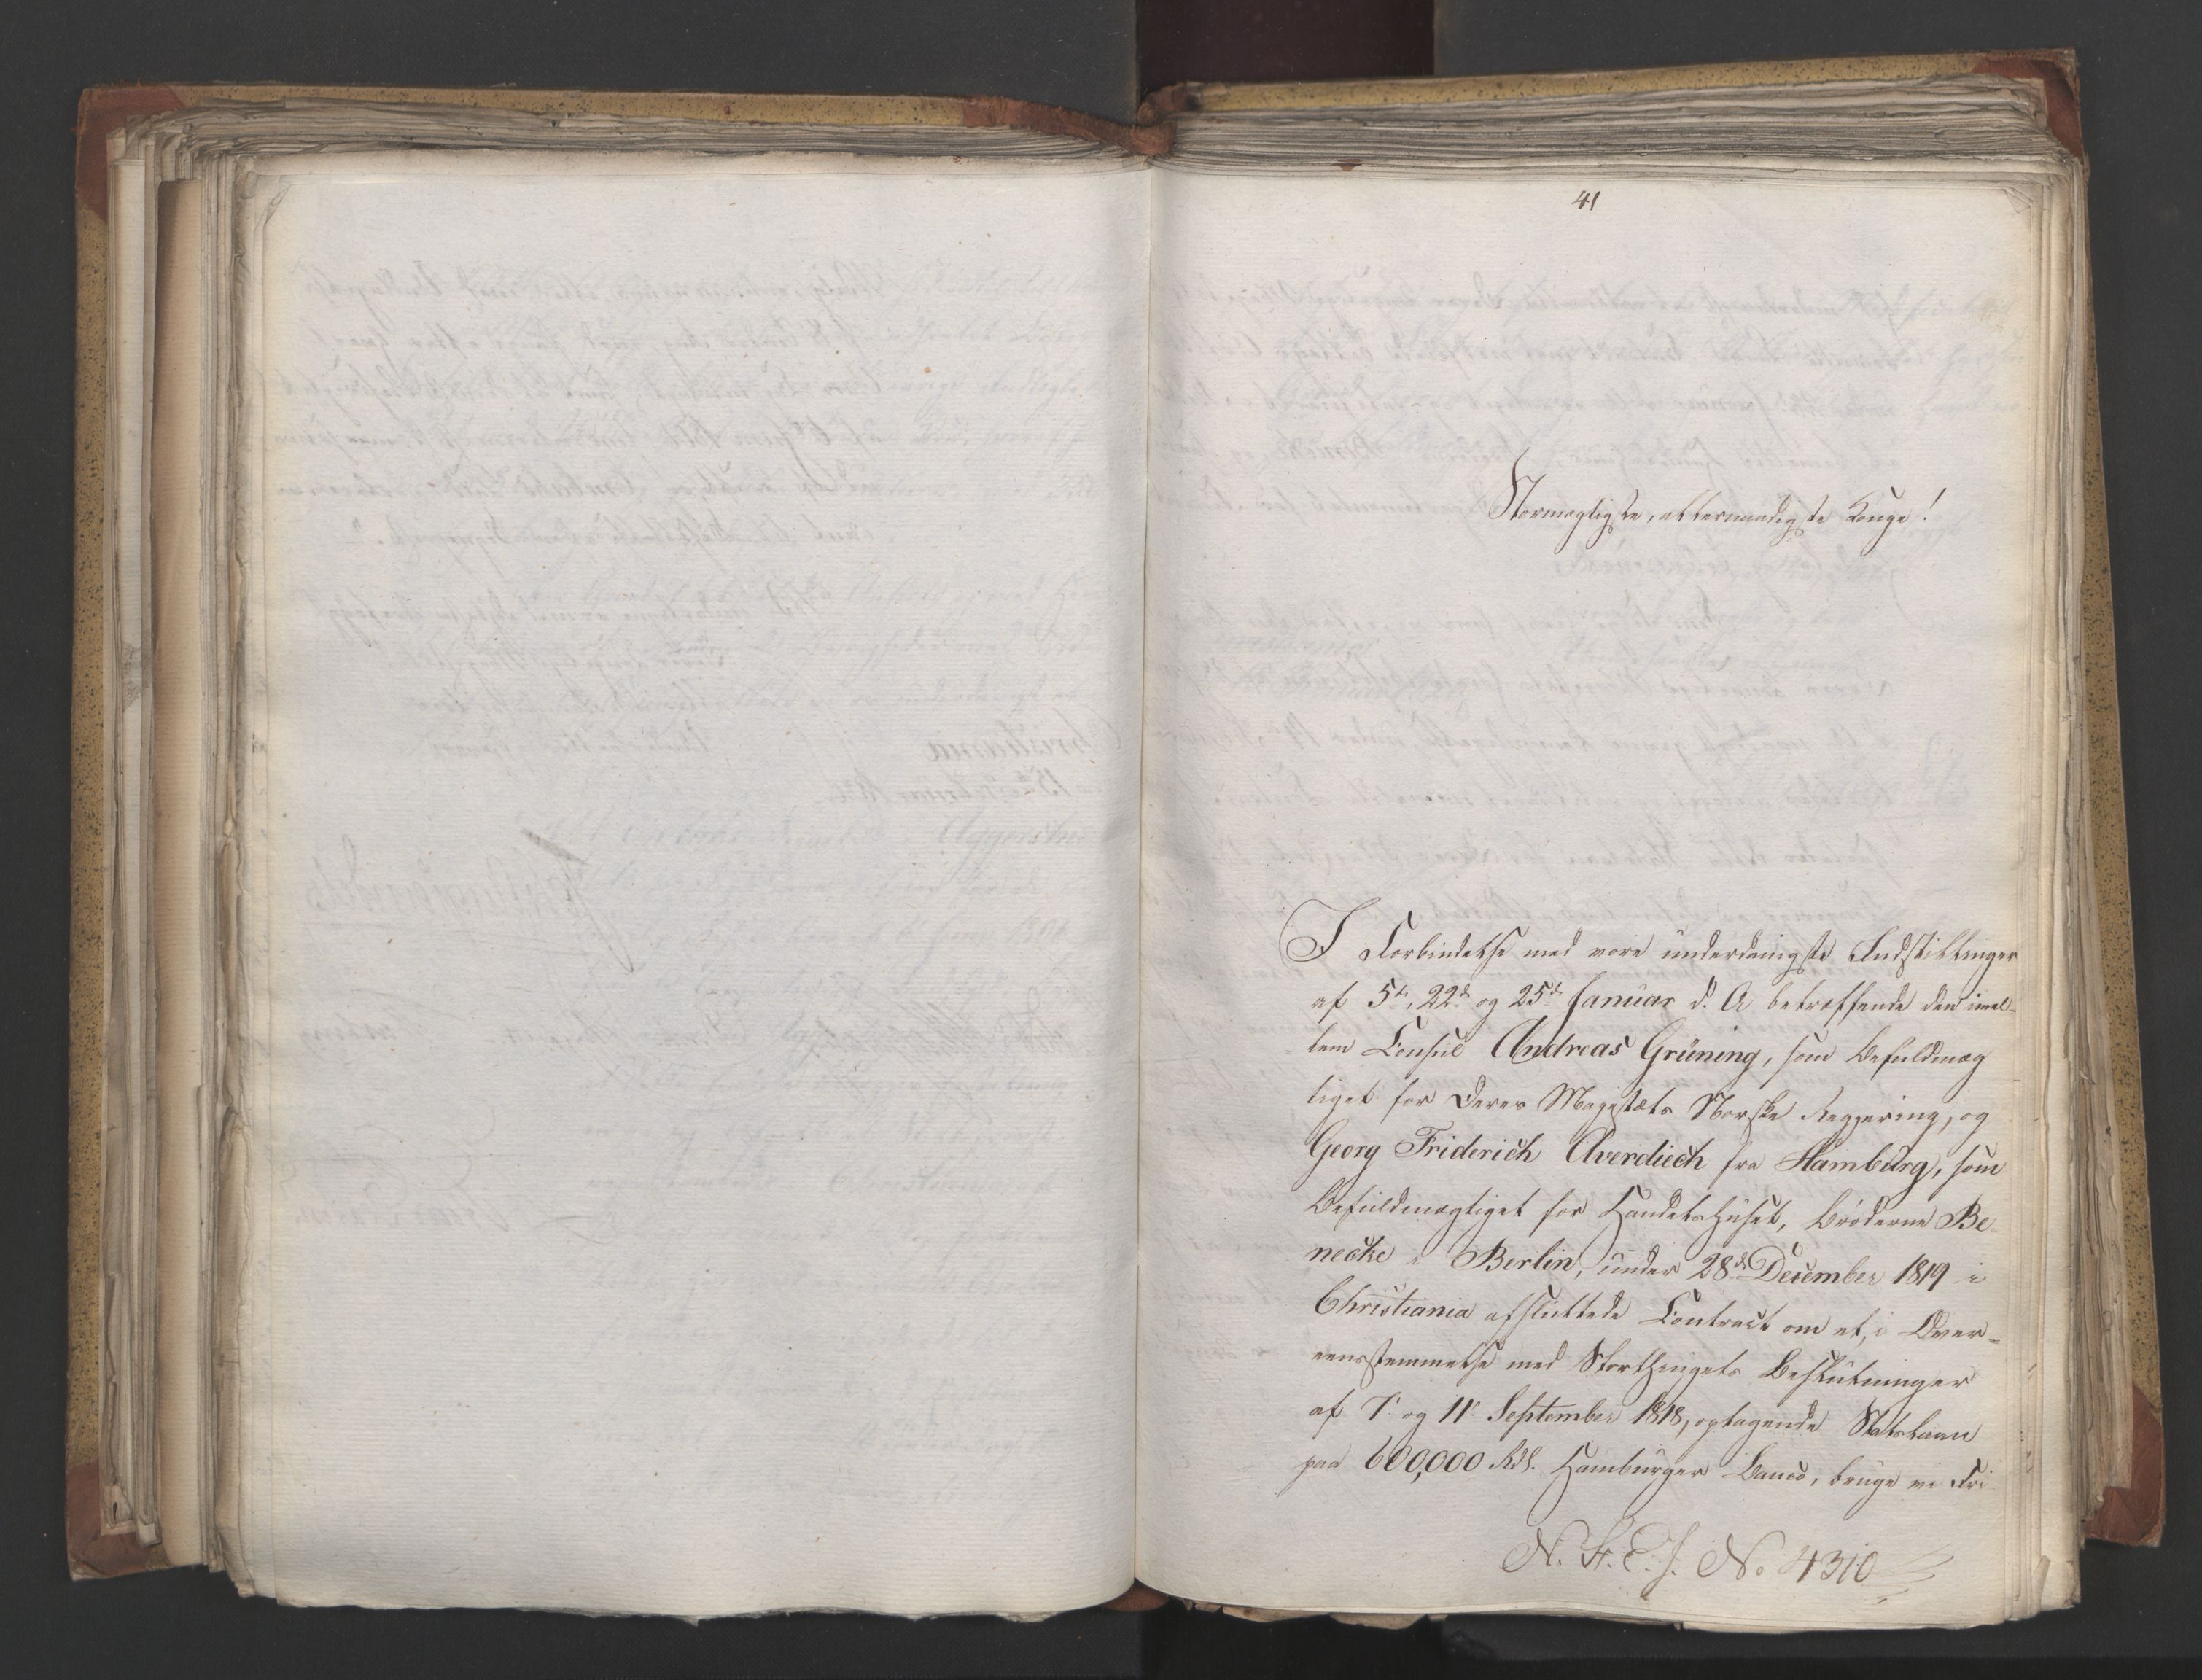 41
Stormægtigste, allernaadigste Konge!
I Forbindelse med vore underdanigste Indstillinger
af 5te, 22de og 25de Januar d. A. betræffende den imel-
lem Consul Andreas Grüning, som Befuldmæg
tiget for Deres Majestæts Norske Regjering, og
Georg Friderich Averdieck fra Hamburg, som
Befuldmægtiget for Handelshuset, Brødrene Be
necke i Berlin, under 28de December 1819 i
Christiania afsluttede Contract om et, i Over-
eensstemmelse med Storthingets Beslutninger
af 7de og 11te September 1818, optagende Statslaan
paa 600,000 Rdl. Hamburger Banco, bruge vi Fri
N. St. E. J. No 4310